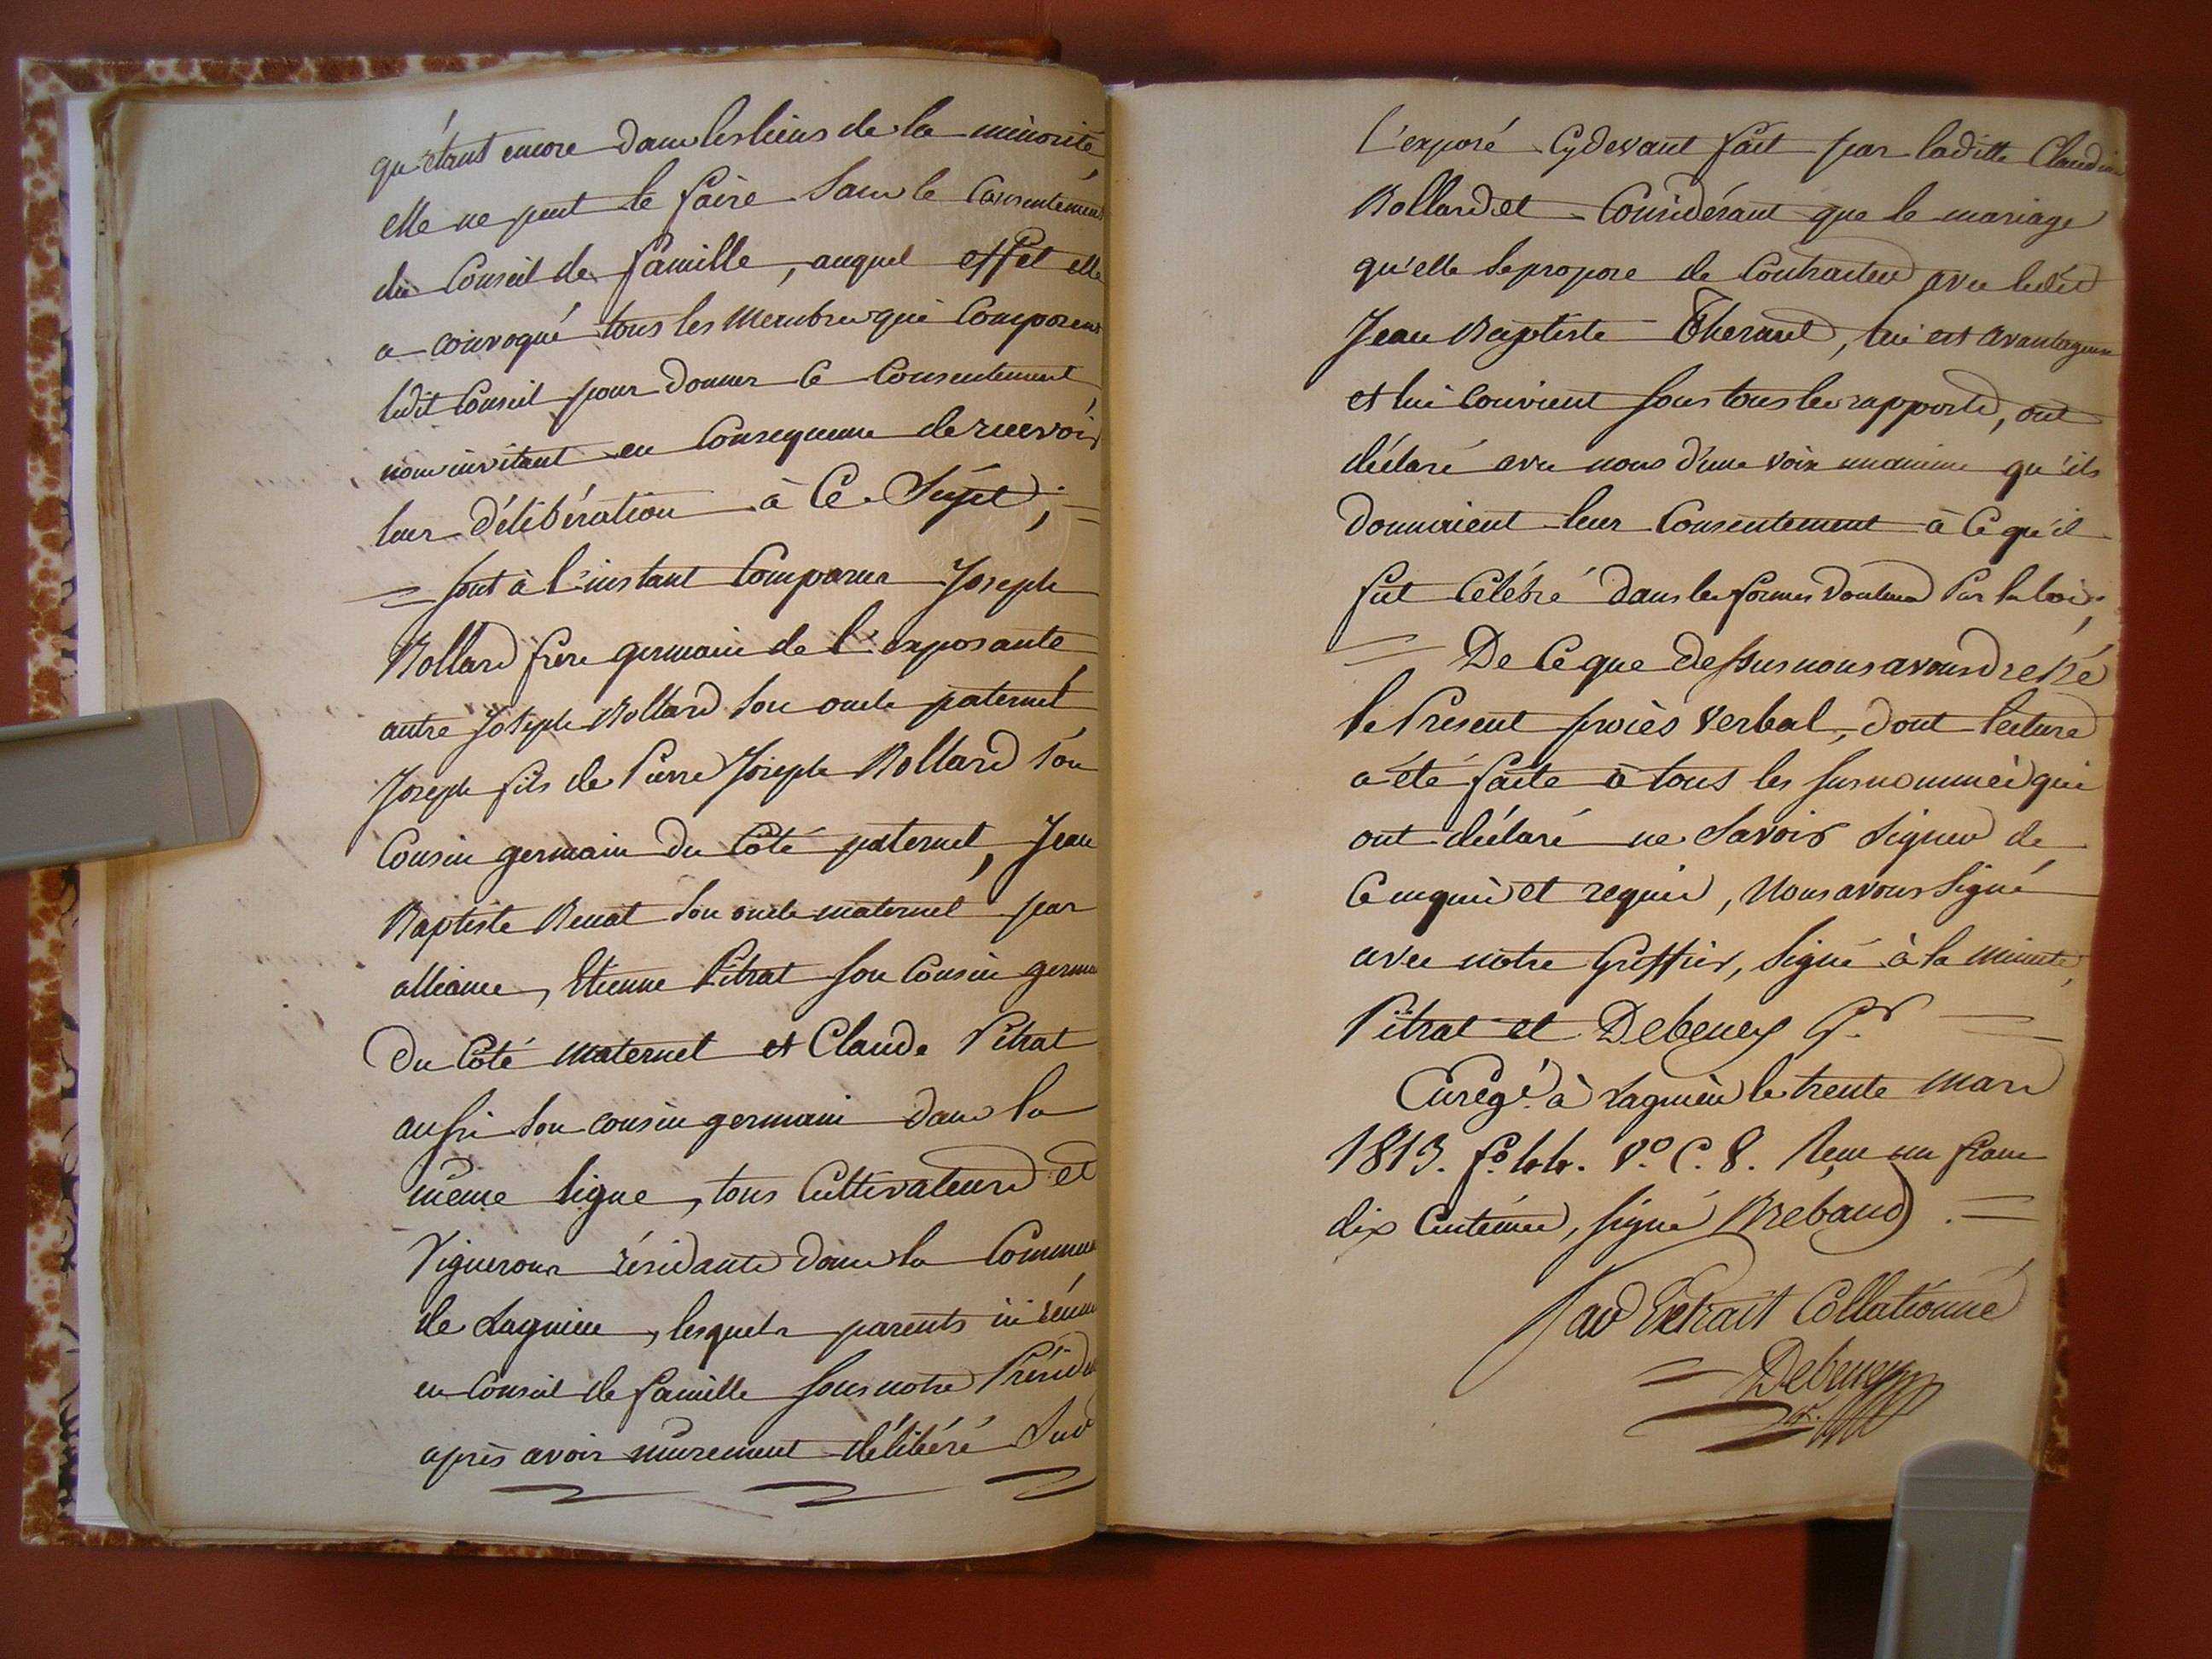 qu'étant encore dans les liens de la minorité,
elle ne peut le faire sans le Consentement
du Conseil de famille, auquel effet elle
a convoqué tous les membres qui Composent
ledit Conseil pour donner ce Consentement,
nous invitant en Conséquence de recevoir
leur délibération à Ce Sujet; =
= Sont à l'instant Comparus Joseph
Rolland frère germain de l'exposante,
autre Joseph Rolland son oncle paternel,
Joseph fils de Pierre Joseph Rolland son
Cousin germain du Coté paternel, Jean
Baptiste son oncle maternel par
alliance, Etienne Pitrat son Cousin germain
Du Coté maternel et Claude Pitrat
aussi son cousin germain dans la
même ligne, tous Cultivateurs et
Vignerons résidants dans la Commune
de Lagnieu, lesquels parents ici réunis
en Conseil de famille sous notre Présidence
après avoir murement délibéré Sur
l'exposé Cydevant fait par laditte Claudine
Rolland et Considérant que le mariage
qu'elle se propose de Contracter avec ledit
Jean Baptiste , lui est avantageux
et lui Convient sous tous les rapports, ont
déclaré avec nous d'une voix unanime qu'ils
donnaient leur Consentement à Ce qu'il
fut Célébré dans les formes voulues par la loi;
= De Ce que dessus nous avons dressé
le Présent procès verbal, dont lecture
a été faite à tous les surnommés qui
ont déclaré ne Savoir Signer de
Ce enquis et requis, Nous avons Signé
avec notre Greffier, Signé à la minute,
Pitrat et Debeney Gr =
Enregé. à Lagnieu le trente mars
1813. fo. 44. Vo. C. 8. Reçu un franc
dix Centimes, signé Brébaud. =
Par Extrait Collationné
= Debeney
Gr.